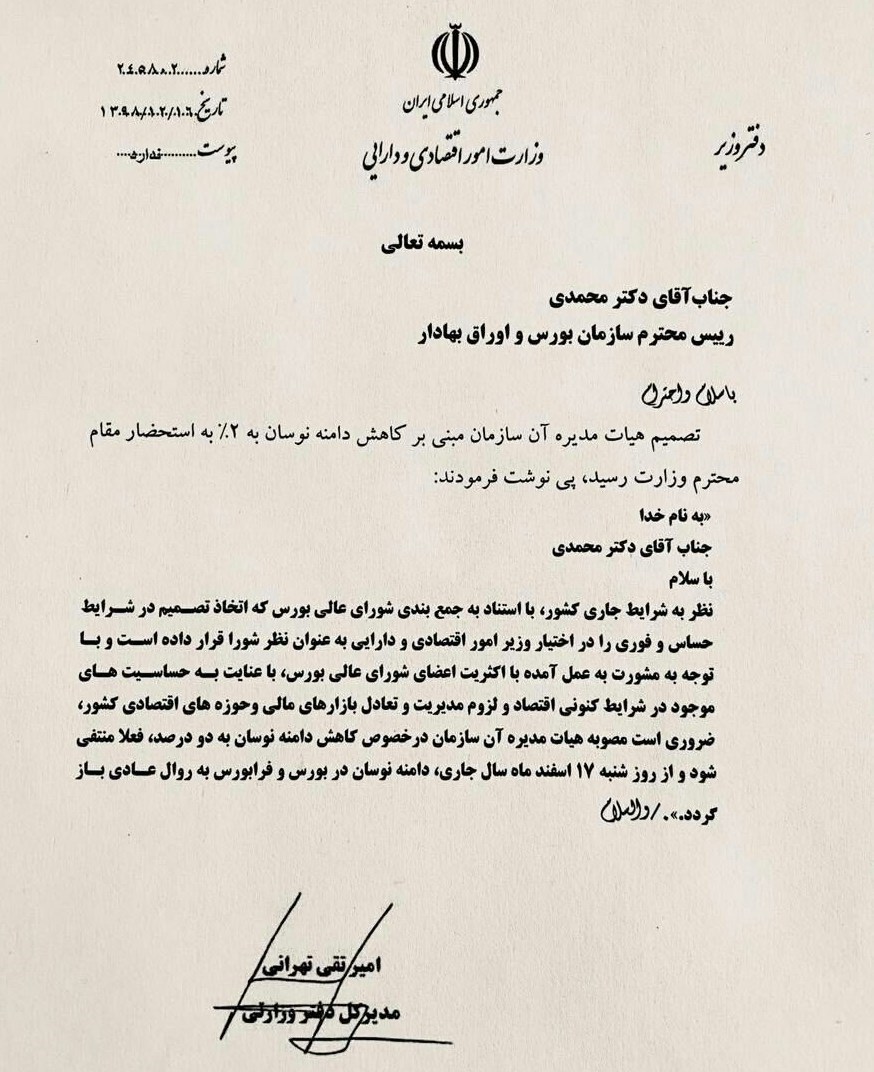 جمهوری اسلامی ایران
وزارت امور اقتصادی و دارایی
دفتر وزیر
شماره
تاریخ
پیوست......ندارد....
بسمه تعالی
جناب آقای دکتر محمدی
رییس محترم سازمان بورس و اوراق بهادار
باسلام و احترام
تصمیم هیات مدیره آن سازمان مبنی بر کاهش دامنه نوسان به ۲٪ به استحضار مقام
محترم وزارت رسید، پی نوشت فرمودند:
«به نام خدا
جناب آقای دکتر محمدی
با سلام
نظر به شرایط جاری کشور، با استناد به جمع بندی شورای عالی بورس که اتخاذ تصمیم در شرایط
حساس و فوری را در اختیار وزیر امور اقتصادی و دارایی به عنوان نظر شورا قرار داده است و با
توجه به مشورت به عمل آمده با اکثریت اعضای شورای عالی بورس، با عنایت به حساسیت های
موجود در شرایط کنونی اقتصاد و لزوم مدیریت و تعادل بازارهای مالی وحوزه های اقتصادی کشور،
ضروری است مصوبه هیات مدیره آن سازمان درخصوص کاهش دامنه نوسان به دو درصد، فعلا منتفی
شود و از روز شنبه ۱۷ اسفند ماه سال جاری، دامنه نوسان در بورس و فرابورس به روال عادی باز
گردد.».⁄والسلام
امیر تقی تهرانی
مدیرکل دفتر وزارتی